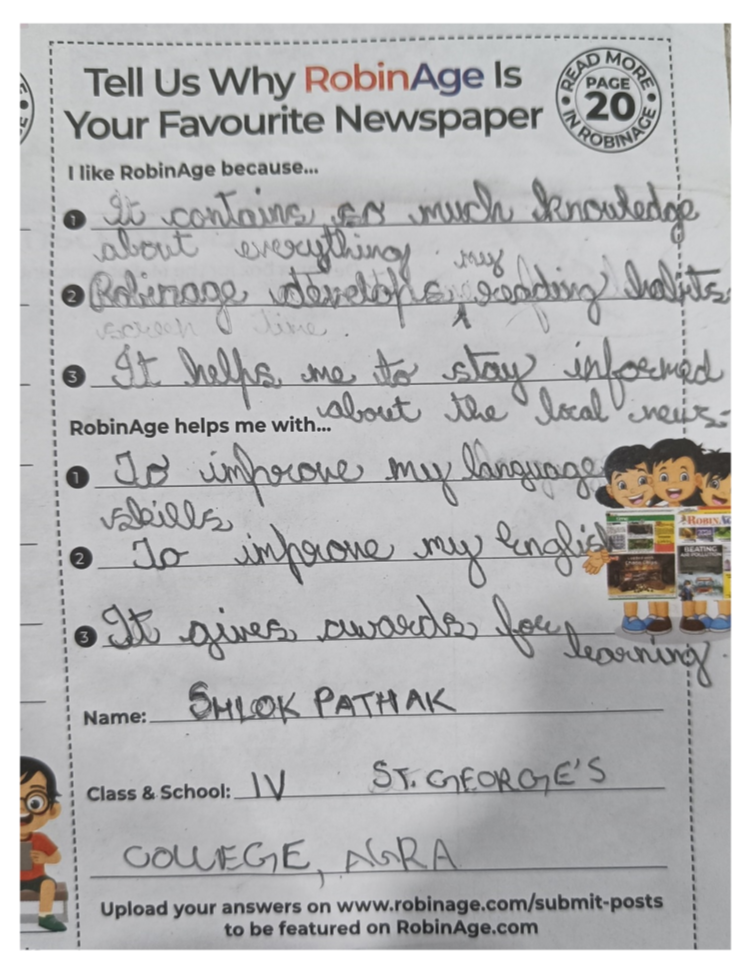 Tell Us Why RobinAge Is
Your Favourite Newspaper
READ MORE
PAGE
20
IN ROBINAGE
I like RobinAge because...
1 It contains so much knowledge
about everything
my
2 Robinage develops reading habits
screen time.
3 It helps me to stay informed
about the local news.
RobinAge helps me with...
1 To improve my language
skills
2 To improve my English
3 It gives awards for
learning.
Name: SHLOK PATHAK
Class & School: IV ST. GEORGE'S
COLLEGE, AGRA
Upload your answers on www.robinage.com/submit-posts
to be featured on RobinAge.com